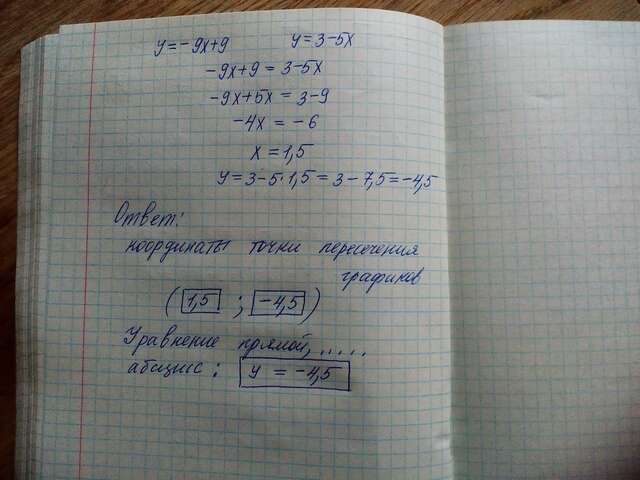 y = -9x+9 y = 3-5x
-9x+9 = 3-5x
-9x+5x = 3-9
-4x = -6
x = 1,5
y = 3-5·1,5 = 3-7,5 = -4,5
Ответ:
координаты точки пересечения
графиков
( 1,5 ; -4,5 )
Уравнение прямой, .....
абцисс : y = -4,5